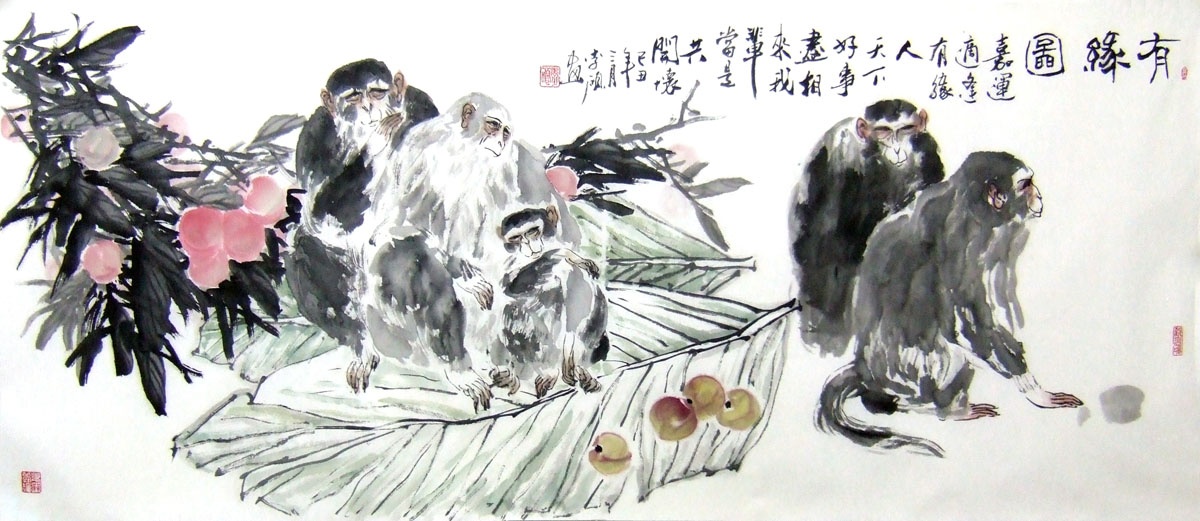 有緣圖
嘉運
適逢
有緣
人
天下
好事
盡相
來我
輩
當是
共
開懷
己丑
年